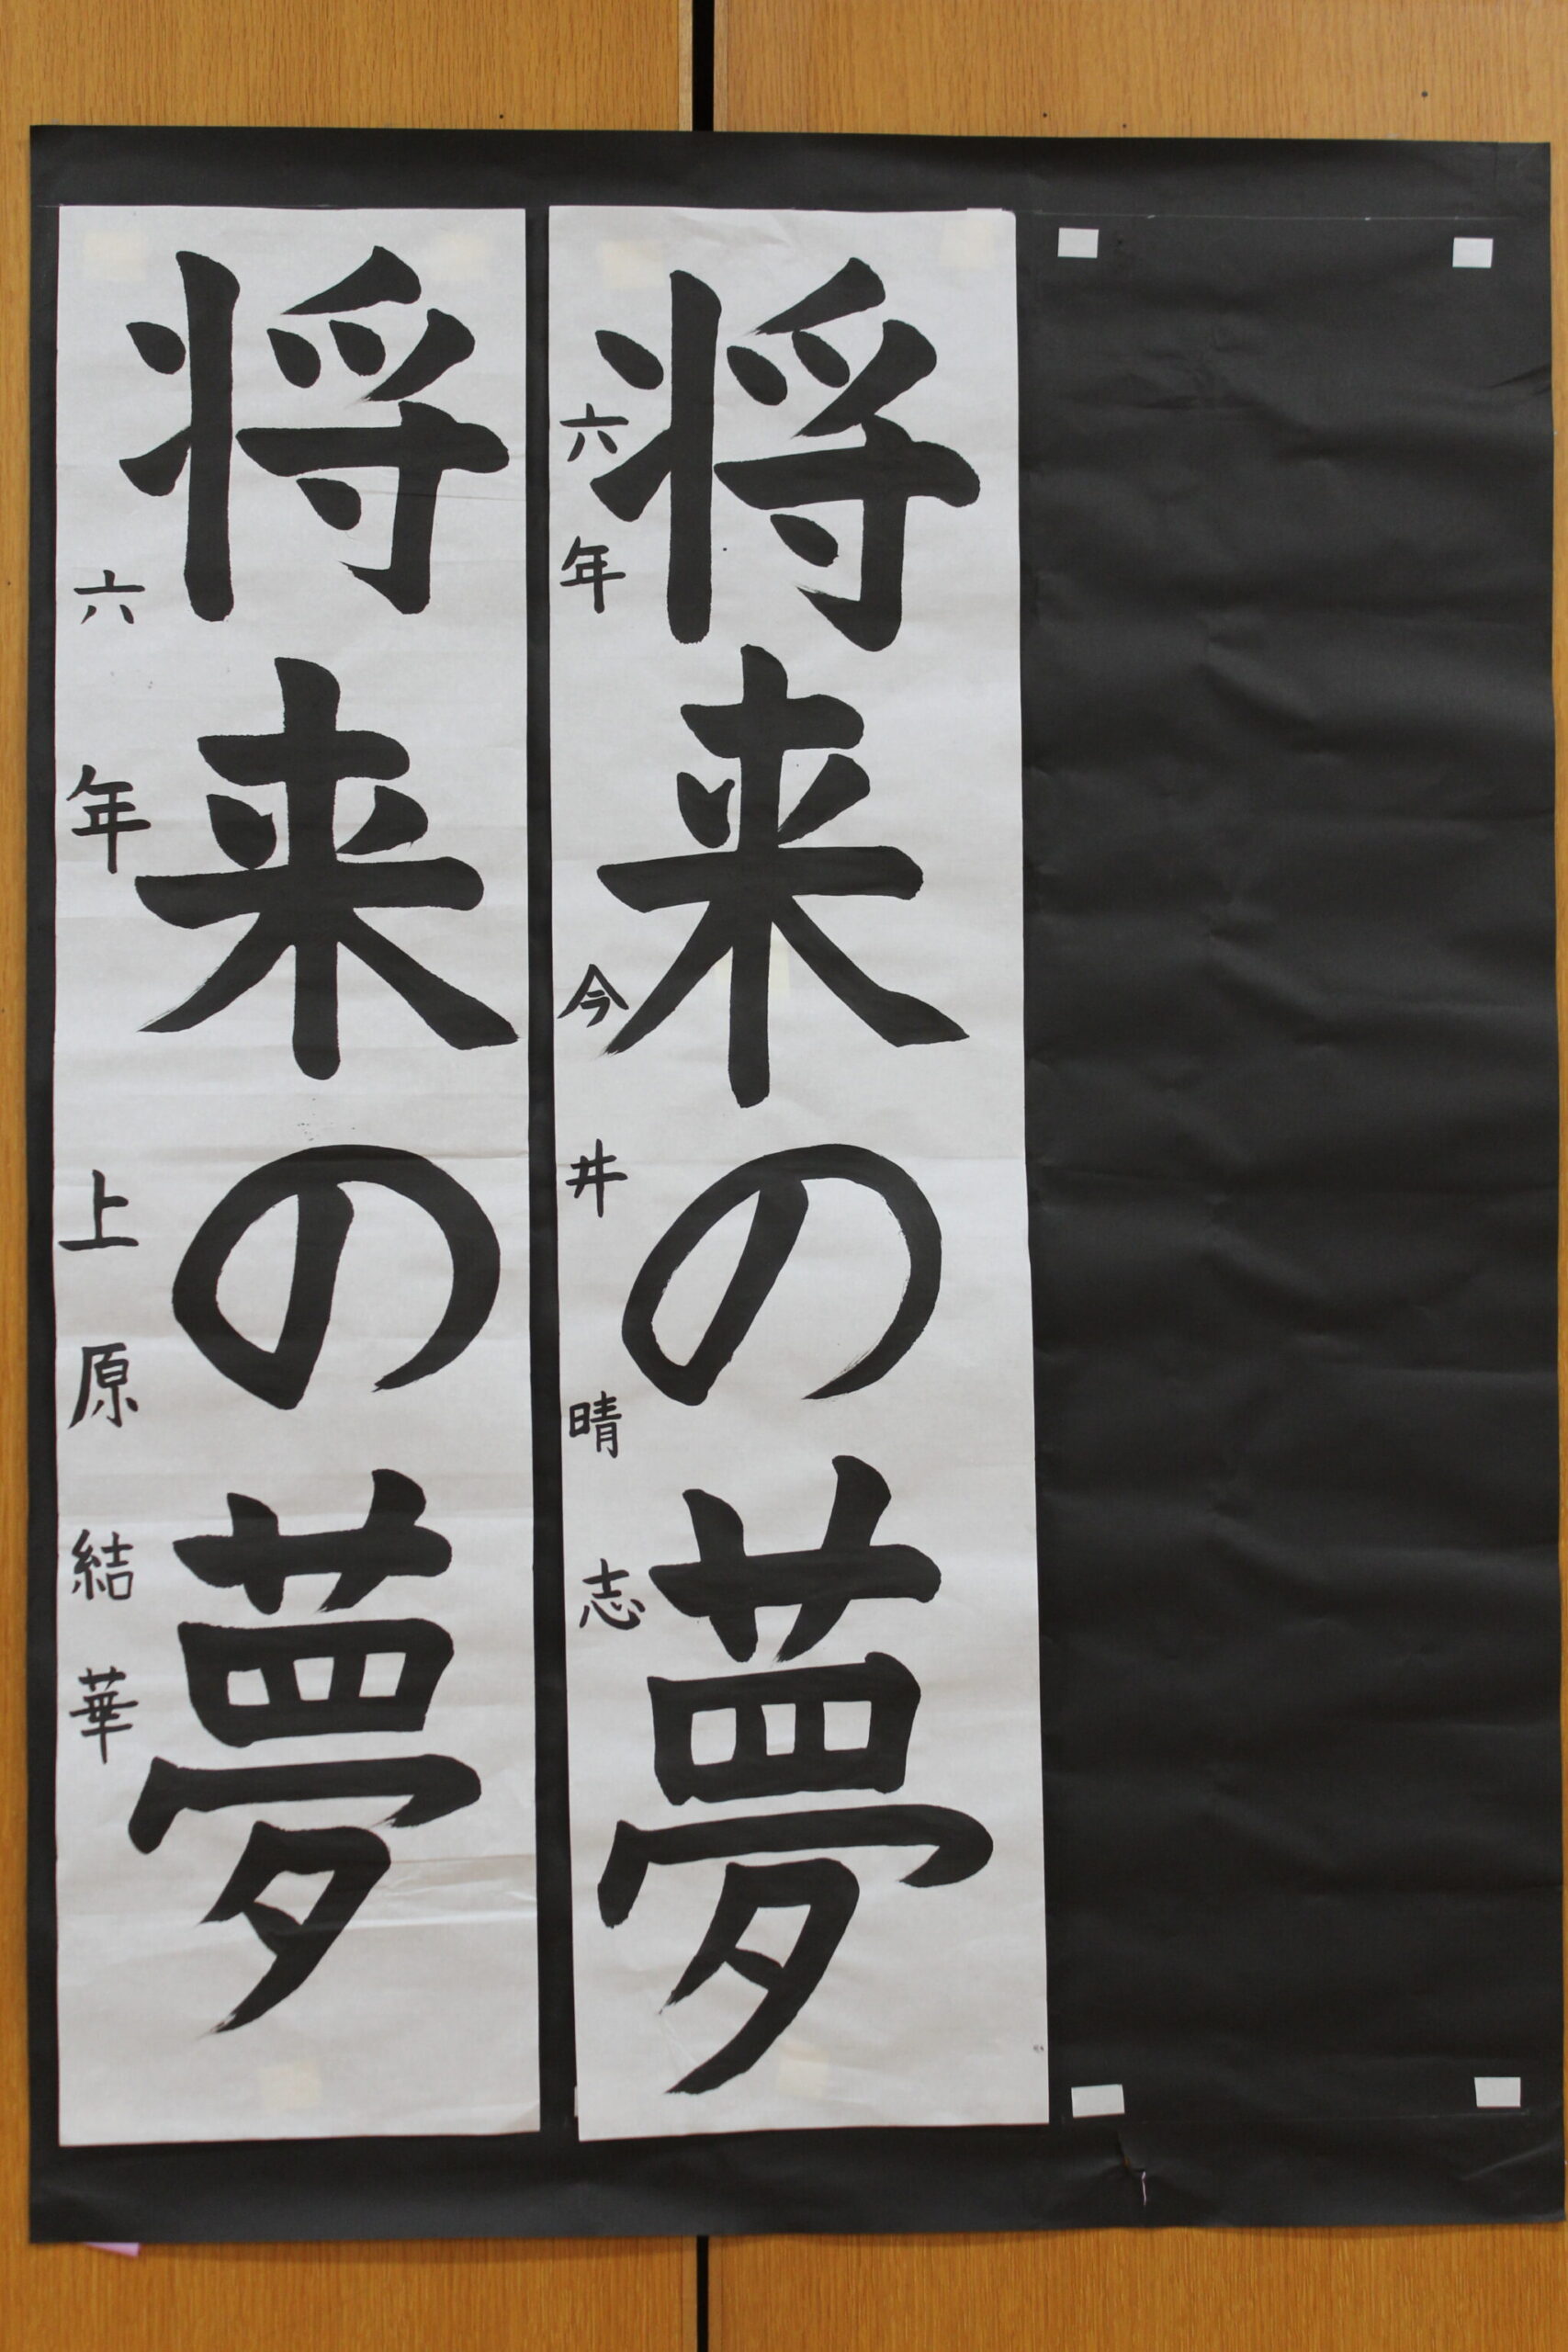 将来の夢
六年 今井晴志
将来の夢
六年 上原結華